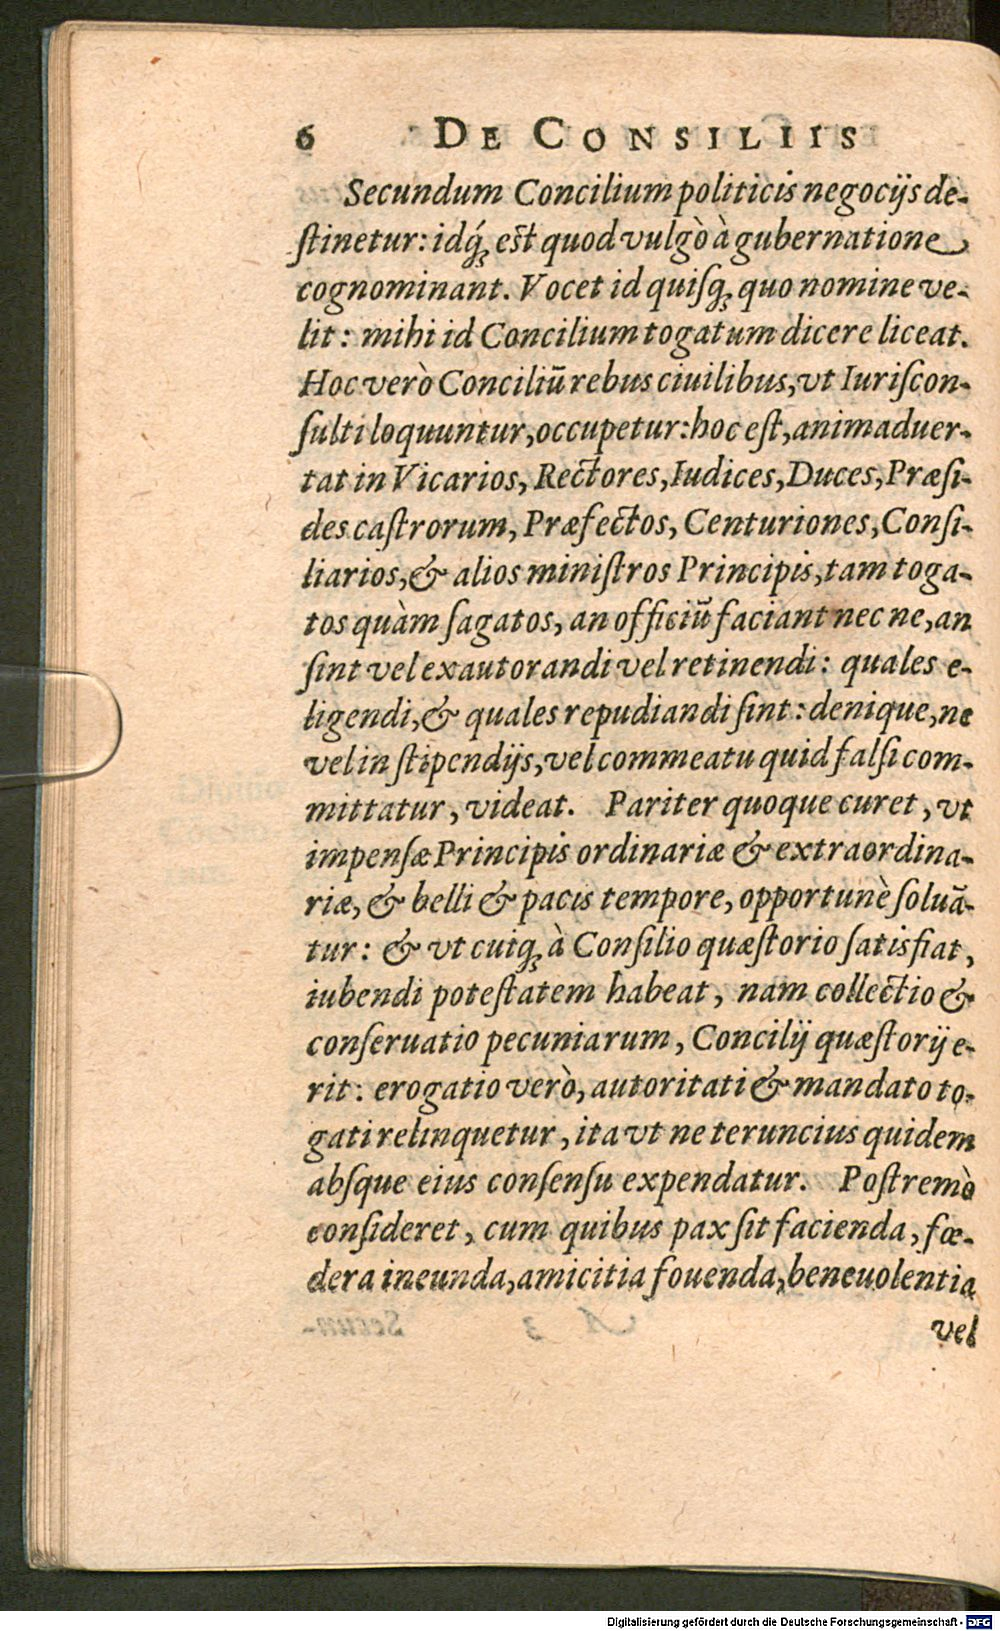 6 DE CONSILIIS
Secundum Concilium politicis negocijs de-
ſtinetur: idq́; eſt quod vulgò à gubernatione
cognominant. Vocet id quiſq; quo nomine ve-
lit: mihi id Concilium togatum dicere liceat.
Hoc verò Conciliũ rebus ciuilibus, vt Iuriſcon-
ſulti loquuntur, occupetur: hoc eſt, animaduer-
tat in Vicarios, Rectores, Iudices, Duces, Præſi-
des caſtrorum, Præfectos, Centuriones, Conſi-
liarios, & alios miniſtros Principis, tam toga-
tos quàm ſagatos, an officiũ faciant nec ne, an
ſint vel exautorandi vel retinendi: quales e-
ligendi, & quales repudiandi ſint: denique, ne
vel in ſtipendijs, vel commeatu quid falſi com-
mittatur, videat. Pariter quoque curet, vt
impenſæ Principis ordinariæ & extraordina-
riæ, & belli & pacis tempore, opportunè ſoluã-
tur: & vt cuiq; à Conſilio quæſtorio ſatisfiat,
iubendi poteſtatem habeat, nam collectio &
conſeruatio pecuniarum, Concilij quæſtorij e-
rit: erogatio verò, autoritati & mandato to-
gati relinquetur, ita vt ne teruncius quidem
abſque eius conſenſu expendatur. Poſtremò
conſideret, cum quibus pax ſit facienda, fœ-
dera ineunda, amicitia fouenda, beneuolentia
vel
Digitalisierung gefördert durch die Deutsche Forschungsgemeinschaft - DFG